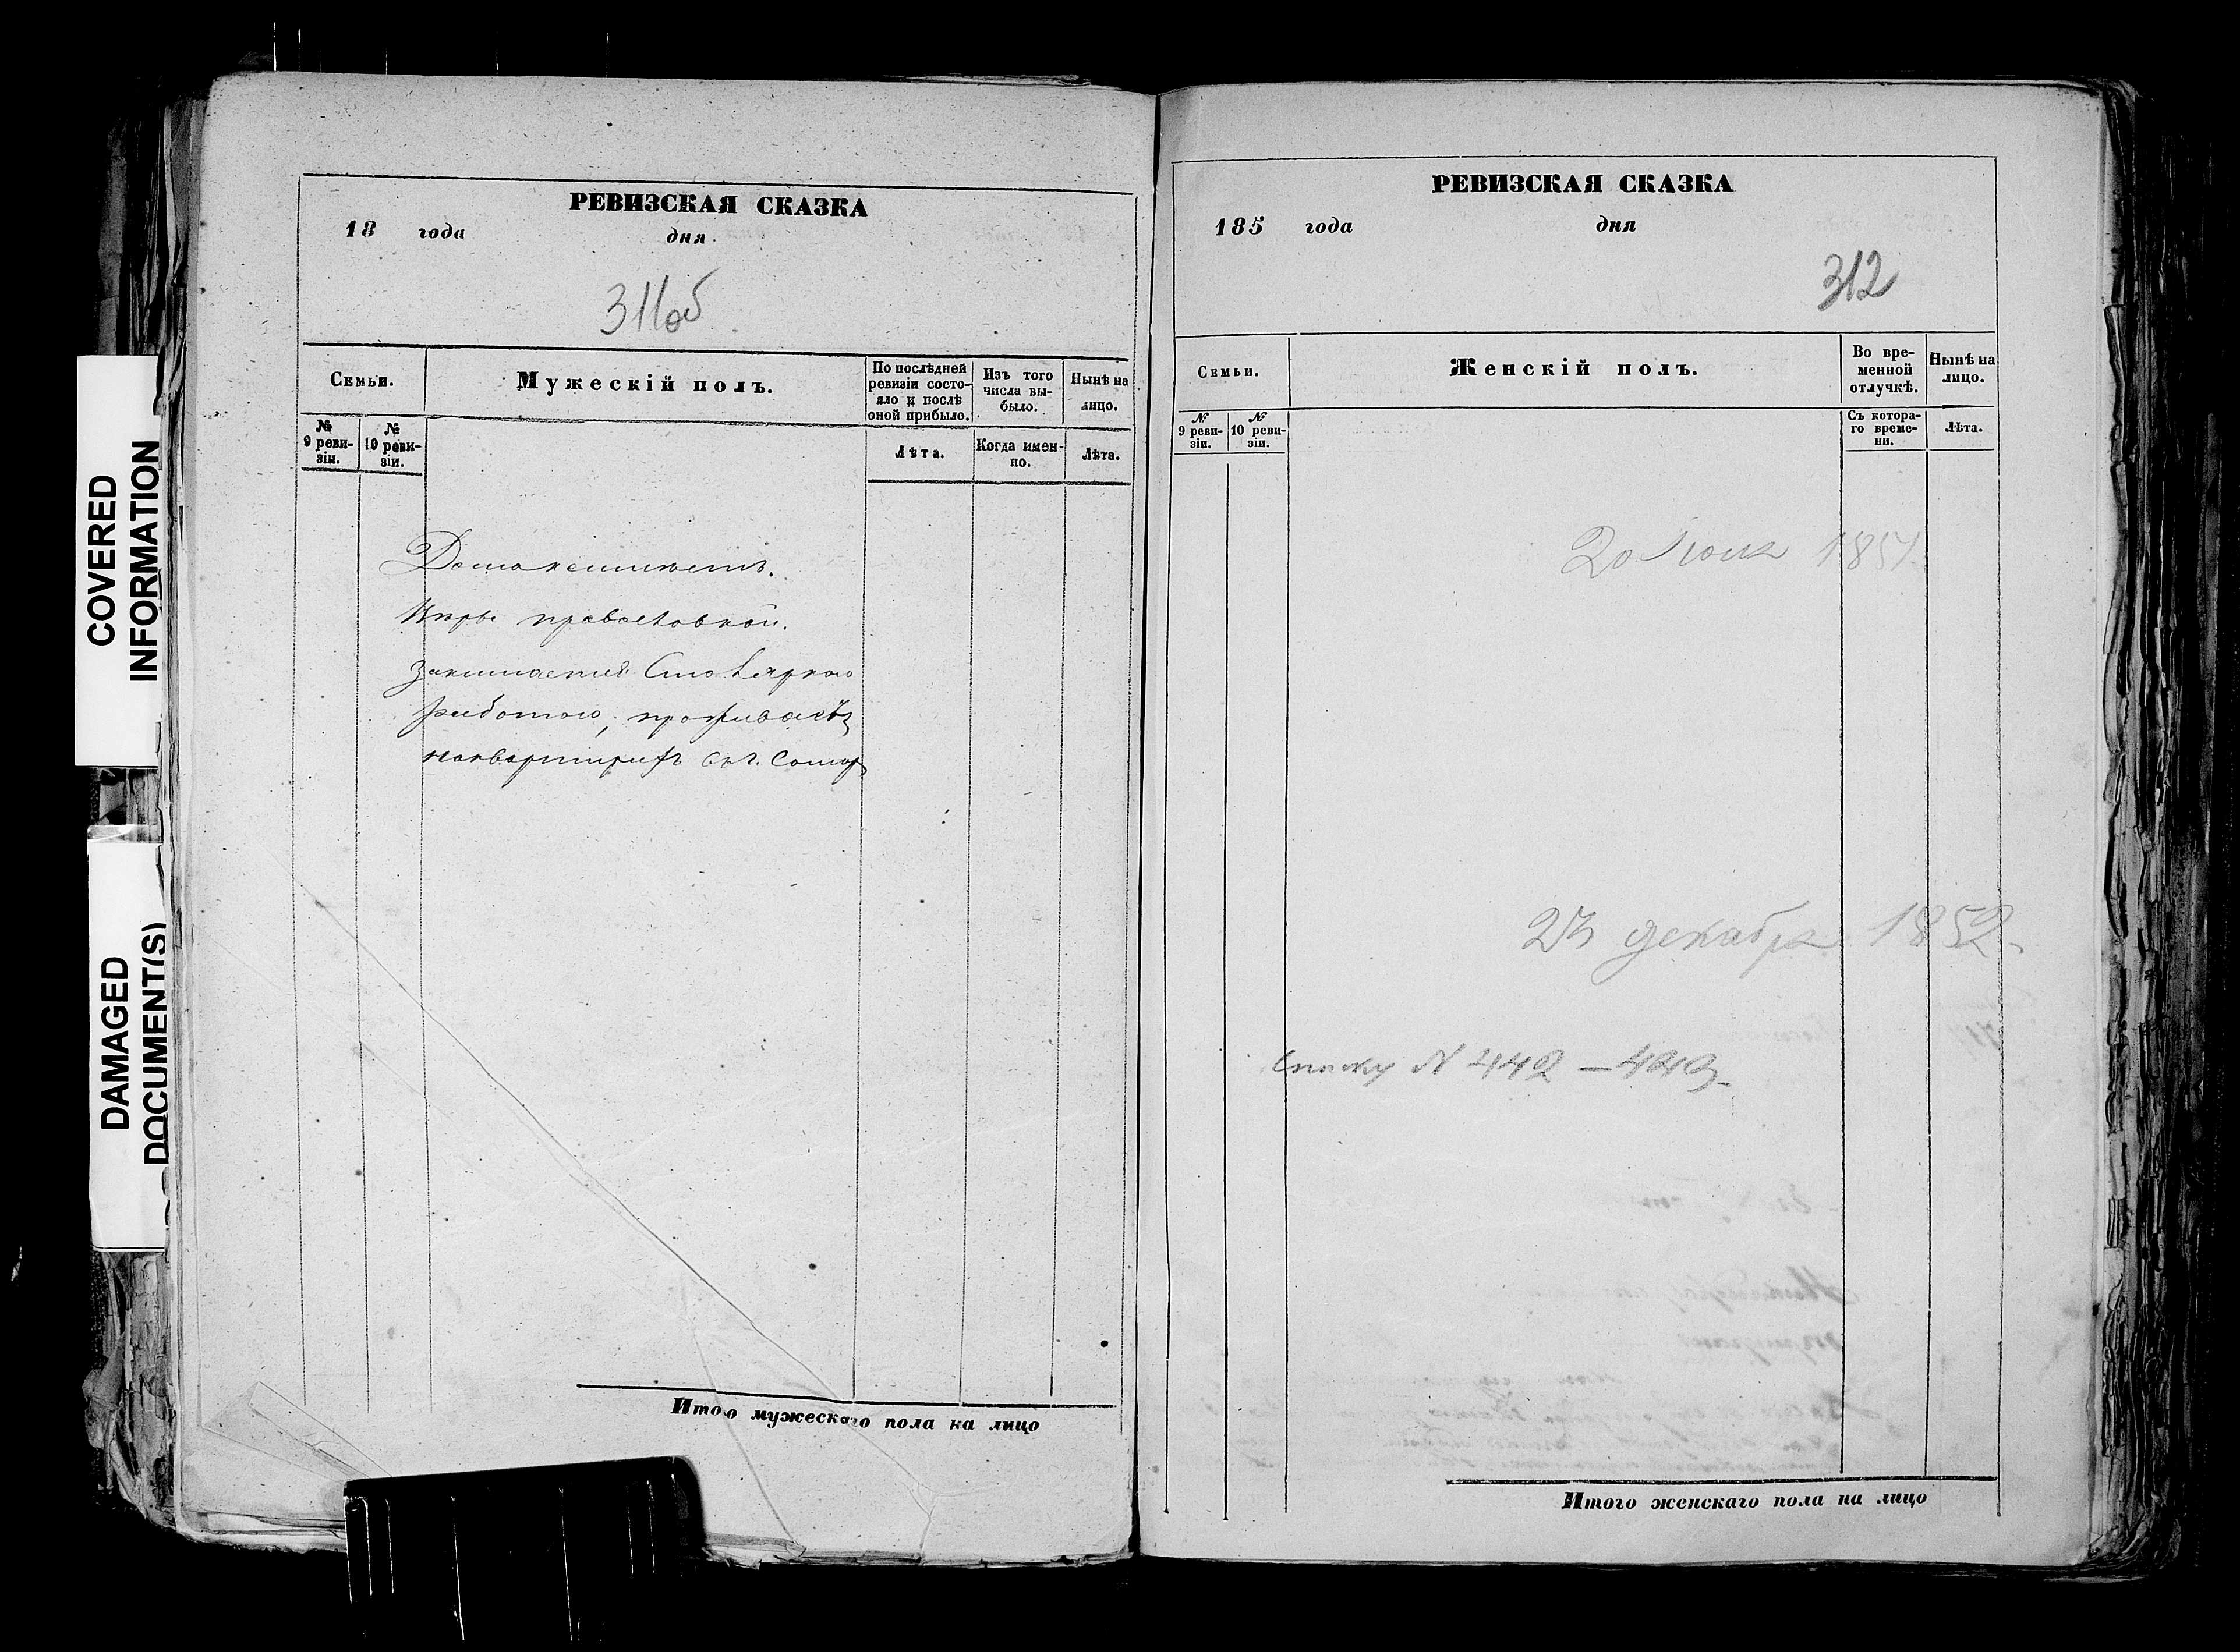 COVERED
INFORMATION
DAMAGED
DOCUMENT(S)
РЕВИЗСКАЯ СКАЗКА
18 года дня
311об
Семьи.
Мужескій полъ.
По послѣдней ревизіи состояло и послѣ оной прибыло.
Изъ того числа выбыло.
Нынѣ на лицо.
№ 9 ревизіи.
№ 10 ревизіи.
Лѣта.
Когда именно.
Лѣта.
Вѣры православной.
занимается Столярною
работою, проживаетъ
на квартирѣ
Итого мужескаго пола на лицо
РЕВИЗСКАЯ СКАЗКА
185 года дня
312
Семьи.
Женскій полъ.
Во временной отлучкѣ.
Нынѣ на лицо.
№ 9 ревизіи.
№ 10 ревизіи.
Съ котораго времени.
Лѣта.
20 1851
23 декабря 1852
списку N 442 —
Итого женскаго пола на лицо